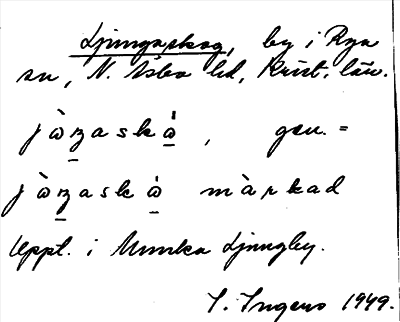 Ljungaskog, by i Rya
sn, N. Åsbo hd, Krist. län.
jὼŋaskὼ, gen. =
jὼŋaskὼ màrkad
Uppl. i Munka Ljungby.
I. Ingers 1949.